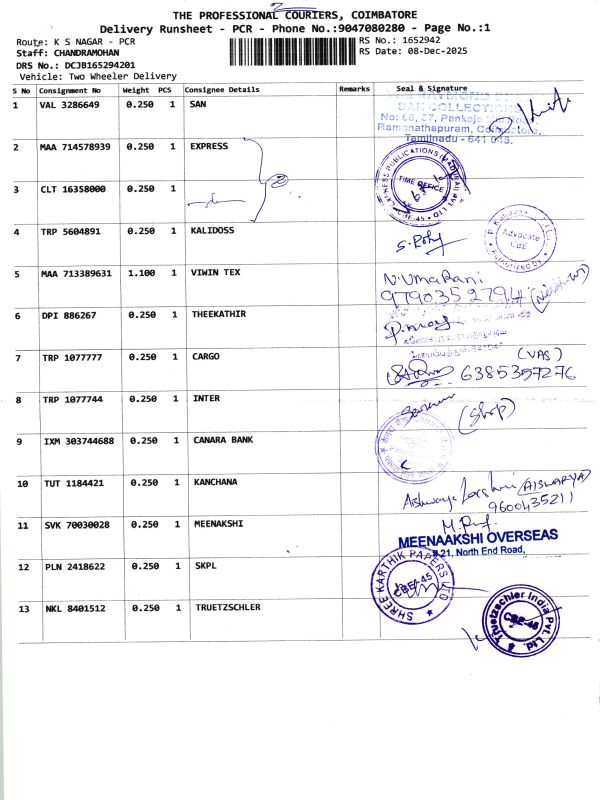 THE PROFESSIONAL COURIERS, COIMBATORE
Delivery Runsheet - PCR - Phone No.:9047080280 - Page No.:1
Route: K S NAGAR - PCR
RS No.: 1652942
Staff: CHANDRAMOHAN
RS Date: 08-Dec-2025
DRS No.: DCJB165294201
Vehicle: Two Wheeler Delivery
S No Consignment No Weight PCS Consignee Details Remarks Seal & Signature
1 VAL 3286649 0.250 1 SAN
THE RAYMOND
SAN COLLECTIONS
No: 66, 67, Pankaja
Ramanathapuram, Coimbatore,
Tamilnadu - 641 045.
2 MAA 714578939 0.250 1 EXPRESS
EXPRESS PUBLICATIONS (MADURAI) PVT LTD
TIME OFFICE
CBE-45
3 CLT 16358000 0.250 1
4 TRP 5604891 0.250 1 KALIDOSS
P. Kalidoss
Advocate
CBE
5 MAA 713389631 1.100 1 VIWIN TEX
N.UmaRani
9790352794
6 DPI 886267 0.250 1 THEEKATHIR
7 TRP 1077777 0.250 1 CARGO
(VAS)
6385357276
8 TRP 1077744 0.250 1 INTER
(Shop)
9 IXM 303744688 0.250 1 CANARA BANK
10 TUT 1184421 0.250 1 KANCHANA
Aishwarya Lakshmi (AISWARYA)
9600435211
11 SVK 70030028 0.250 1 MEENAKSHI
MEENAAKSHI OVERSEAS
#21, North End Road,
12 PLN 2418622 0.250 1 SKPL
SHREE KARTHIK PAPERS LTD
CBE-45
13 NKL 8401512 0.250 1 TRUETZSCHLER
Truetzschler India Pvt. Ltd
CBE-45